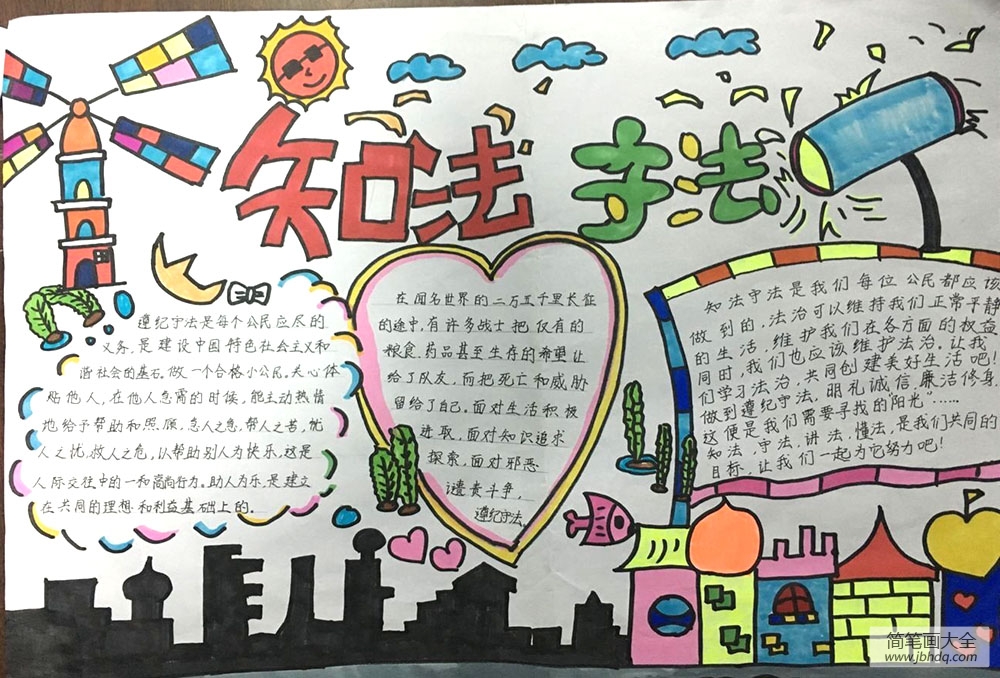 知法守法
遵纪守法是每个公民应尽的
义务,是建设中国特色社会主义和
谐社会的基石。做一个合格小公民。关心体
贴他人,在他人急需的时候,能主动热情
地给予帮助和照顾,急人之急,帮人之苦,忧
人之忧,救人之危,以帮助别人为快乐,这是
人际交往中的一和高尚行为。助人为乐,是建立
在共同的理想和利益基础上的。
在闻名世界的二万五千里长征
的途中,有许多战士把仅有的
粮食、药品甚至生存的希望让
给了队友,而把死亡和威胁
留给了自己。面对生活积极
进取,面对知识追求
探索,面对邪恶
谴责斗争,
遵纪守法。
知法守法是我们每位公民都应该
做到的,法治可以维持我们正常平静
的生活,维护我们在各方面的权益
同时,我们也应该维护法治。让我
们学习法治,共同创建美好生活吧!
做到遵纪守法,明礼诚信,廉洁修身,
这便是我们需要寻找的“阳光”……
知法,守法,讲法,懂法,是我们共同的
目标,让我们一起为它努力吧!
简笔画大全
www.jbhdq.com